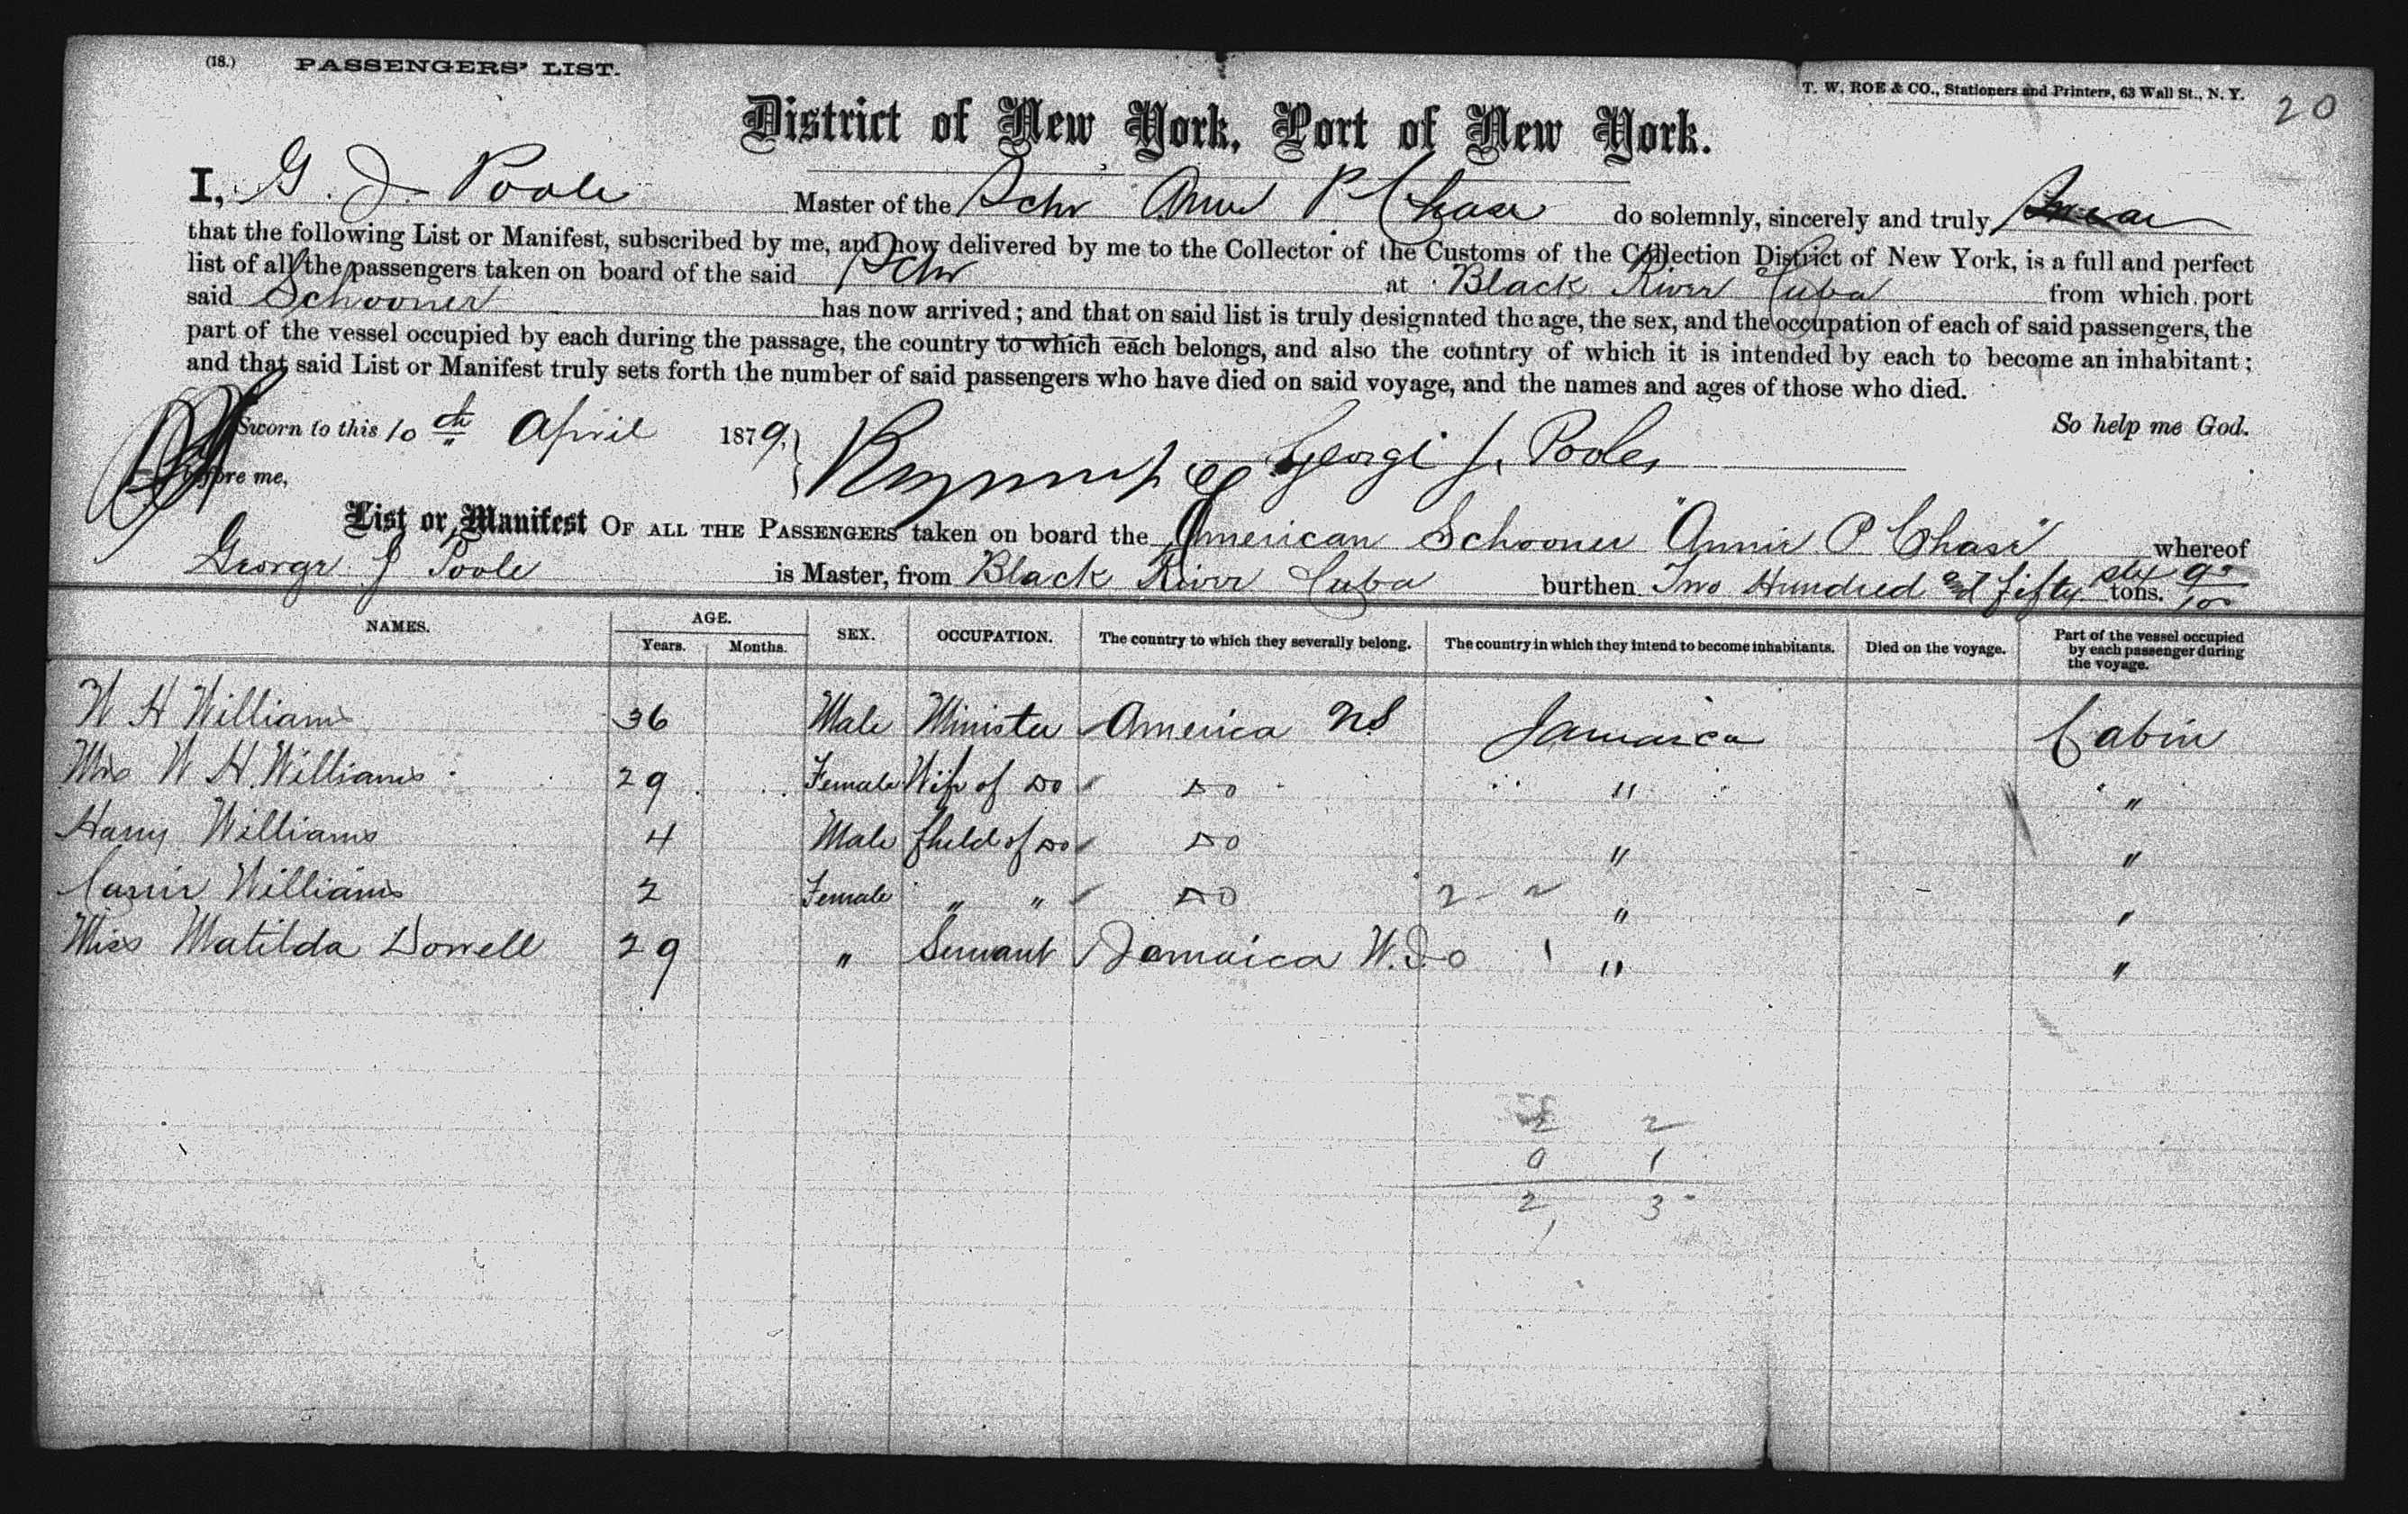 (18.) PASSENGERS' LIST.
T. W. ROE & CO., Stationers and Printers, 63 Wall St., N. Y.
20
District of New York, Port of New York.
I, G. J. Poole Master of the Schr Annie P Chase do solemnly, sincerely and truly Swear
that the following List or Manifest, subscribed by me, and now delivered by me to the Collector of the Customs of the Collection District of New York, is a full and perfect
list of all the passengers taken on board of the said Schr at Black River Cuba from which port
said Schooner has now arrived; and that on said list is truly designated the age, the sex, and the occupation of each of said passengers, the
part of the vessel occupied by each during the passage, the country to which each belongs, and also the country of which it is intended by each to become an inhabitant;
and that said List or Manifest truly sets forth the number of said passengers who have died on said voyage, and the names and ages of those who died.
So help me God.
Sworn to this 10th April 1879.
before me,
George J. Poole,
List or Manifest OF ALL THE PASSENGERS taken on board the American Schooner "Annie P Chase" whereof
George J Poole is Master, from Black River Cuba burthen Two Hundred and fifty six 95/100 tons.
NAMES. AGE. Years. Months. SEX. OCCUPATION. The country to which they severally belong. The country in which they intend to become inhabitants. Died on the voyage. Part of the vessel occupied by each passenger during the voyage.
W H Williams 36 Male Minister America NS Jamaica Cabin
Mrs W H. Williams 29 Female Wife of Do Do " "
Harry Williams 4 Male Child of Do Do " "
Carrie Williams 2 Female " " Do 2 - " "
Miss Matilda Dowell 29 " Servant Jamaica W.I. 0 1 " "
2 2
0 1
2 3